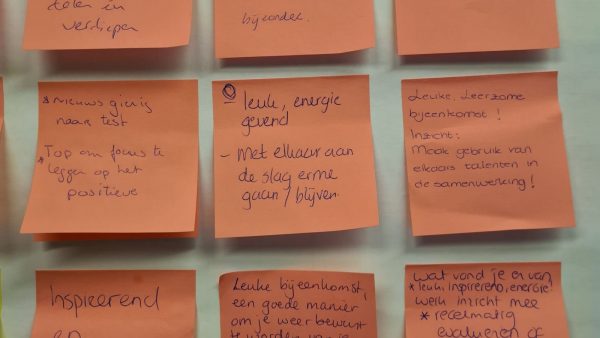 delen en
verdiepen
bijzonder.
* Nieuwsgierig
naar test
* Top om focus te
leggen op het
positieve
- leuk, energie
gevend
- Met elkaar aan
de slag ermee
gaan / blijven.
Leuke, Leerzame
bijeenkomst!
Inzicht:
Maak gebruik van
elkaars talenten in
de samenwerking!
Inspirerend
en
Leuke bijeenkomst,
een goede manier
om je weer bewust
te worden van je
wat vond je er van
* leuk, inspirerend, energie!
werk inzicht mee
* regelmatig
evalueren of